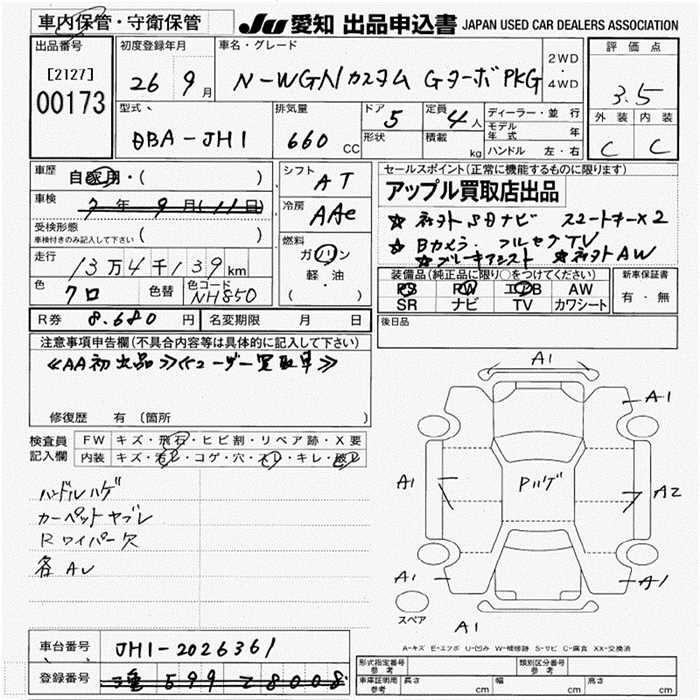 車内保管・守衛保管
JU 愛知 出品申込書 JAPAN USED CAR DEALERS ASSOCIATION
出品番号 [2127] 00173
初度登録年月 26 9月
車名・グレード N-WGNカスタム GターボPKG
2WD・4WD
評価点 3.5
外装 内装
C C
型式 DBA-JH1
排気量 660 CC
ドア 5
形状
定員 4人
積載 kg
ディーラー・並行
モデル年式 年
ハンドル 左・右
車歴 自家用・( )
シフト AT
車検 7年9月(11日)
冷房 AAC
受検形態 車検付きのみ記入して下さい ( )
燃料 ガソリン 軽油 ( )
走行 13万4千139km
色 クロ 色替 色コード NH850
R券 8.680円 名変期限 月 日
セールスポイント(正常に機能するものに限り)
アップル買取店出品
☆社外SDナビ スマートキー×2
☆Bカメラ・フルセグTV
☆ブレーキアシスト ☆社外AW
装備品(純正品に限り○をつけてください)
PS PW エアB AW
SR ナビ TV カワシート
新車保証書 有・無
後日品
注意事項申告欄(不具合内容等は具体的に記入して下さい)
≪AA初出品≫≪ユーザー買取車≫
修復歴 有 〔箇所 〕
検査員記入欄
FW キズ・飛石・ヒビ割・リペア跡・X要
内装 キズ・汚レ・コゲ・穴・スレ・キレ・破レ
ハンドルハゲ
カーペットヤブレ
Rワイパー欠
各AU
A1
A1
A1 Pハゲ A2
A1 A1
スペア
A1
A-キズ E-エクボ U-凹み W-補修跡 S-サビ C-腐食 XX-交換済
車台番号 JH1-2026361
登録番号 599 8008
形式指定番号 参考 類別区分番号 参考
車庫証明用参考 長さ cm 幅 cm 高さ cm